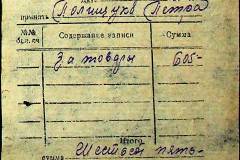 принять Полищука Петра
№№ Содержание записи Сумма
За товары 605-
Итого
сумма Шестьсот пять-